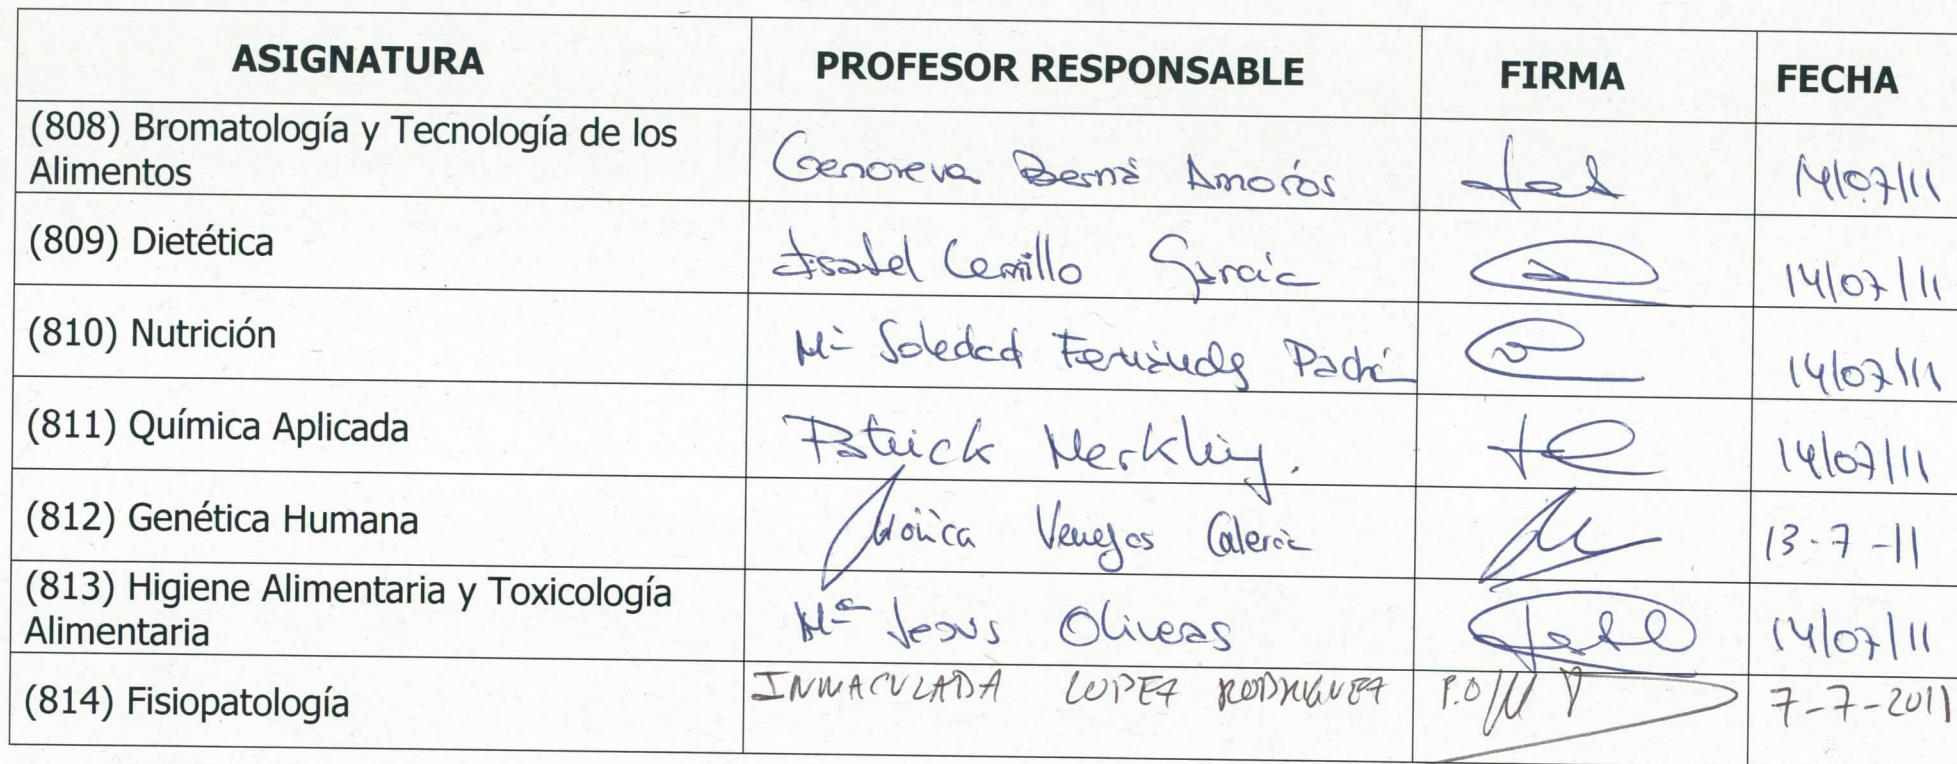 ASIGNATURA PROFESOR RESPONSABLE FIRMA FECHA
(808) Bromatología y Tecnología de los
Alimentos Genoveva Berná Amorós 14/07/11
(809) Dietética Isabel Cerrillo García 14/07/11
(810) Nutrición Mª Soledad Fernández Pachón 14/07/11
(811) Química Aplicada Patrick Merkling. 14/07/11
(812) Genética Humana Mónica Venegas Calerón 13-7-11
(813) Higiene Alimentaria y Toxicología
Alimentaria Mª Jesús Oliveras 14/07/11
(814) Fisiopatología INMACULADA LOPEZ RODRIGUEZ P.O 7-7-2011